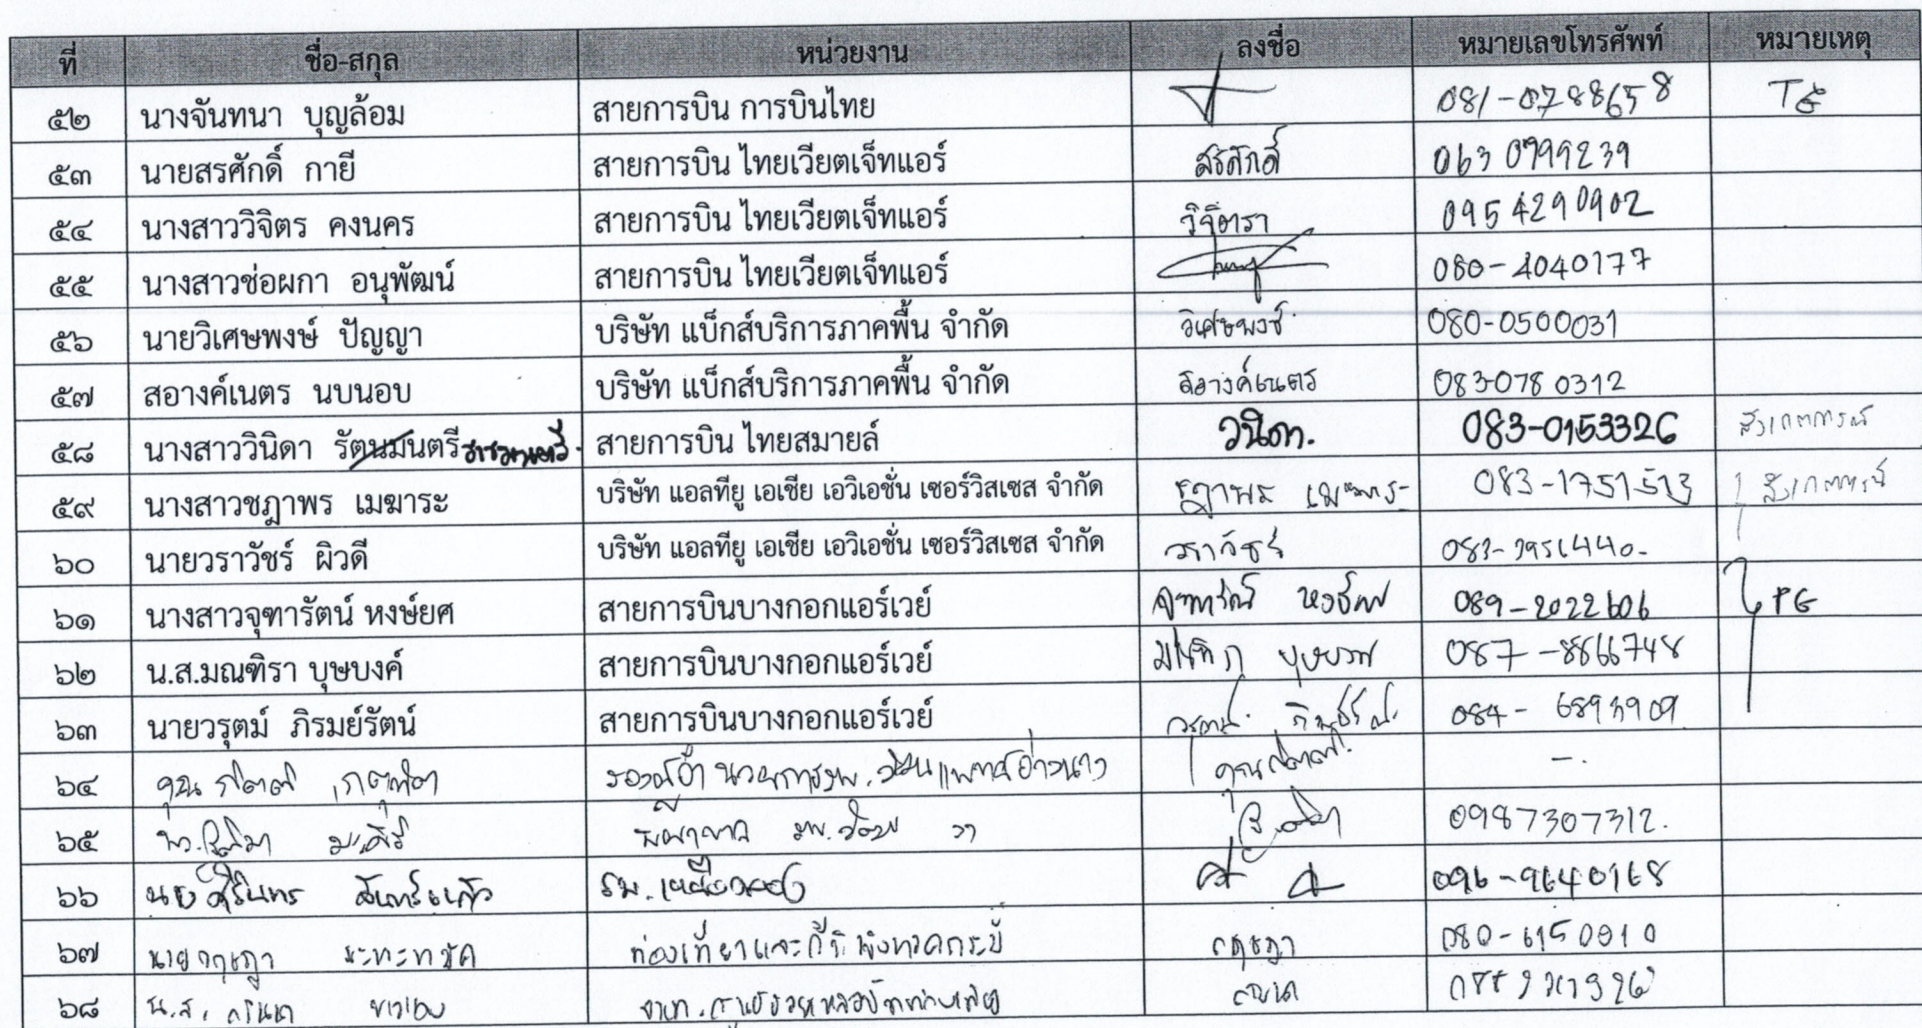 ที่ ชื่อ-สกุล หน่วยงาน ลงชื่อ หมายเลขโทรศัพท์ หมายเหตุ
๕๒ นางจันทนา บุญล้อม สายการบิน การบินไทย 081-0788658 TG
๕๓ นายสรศักดิ์ กายี สายการบิน ไทยเวียตเจ็ทแอร์ สรศักดิ์ 063 0999239
๕๔ นางสาววิจิตร คงนคร สายการบิน ไทยเวียตเจ็ทแอร์ วิจิตรา 095 4290902
๕๕ นางสาวช่อผกา อนุพัฒน์ สายการบิน ไทยเวียตเจ็ทแอร์ 080-4040177
๕๖ นายวิเศษพงษ์ ปัญญา บริษัท แบ็กส์บริการภาคพื้น จำกัด วิเศษพงษ์ 080-0500031
๕๗ สอางค์เนตร นบนอบ บริษัท แบ็กส์บริการภาคพื้น จำกัด สอางค์เนตร 083-0780312
๕๘ นางสาววินิดา รัตนมนตรี สายการบิน ไทยสมายล์ วนิดา. 083-0153326 สังเกตการณ์
๕๙ นางสาวชฎาพร เมฆาระ บริษัท แอลทียู เอเชีย เอวิเอชั่น เซอร์วิสเซส จำกัด ชฎาพร เมฆาระ 083-1751513 สังเกตการณ์
๖๐ นายวราวัชร์ ผิวดี บริษัท แอลทียู เอเชีย เอวิเอชั่น เซอร์วิสเซส จำกัด วราวัชร์
๖๑ นางสาวจุฑารัตน์ หงษ์ยศ สายการบินบางกอกแอร์เวย์ จุฑารัตน์ หงษ์ยศ 089-2022606 PG
๖๒ น.ส.มณฑิรา บุษบงค์ สายการบินบางกอกแอร์เวย์ มณฑิรา บุษบงค์ 087-8866748
๖๓ นายวรุตม์ ภิรมย์รัตน์ สายการบินบางกอกแอร์เวย์ วรุตม์ ภิรมย์รัตน์ 084-6893909
๖๔ คุณ -.
๖๕ 0987307312.
๖๖ นาย ศิรินทร จันทร์แก้ว รพ.เหนือคลอง 096-9640168
๖๗ นายกฤษฎา ท่องเที่ยวและกีฬาจังหวัดกระบี่ กฤษฎา 080-6150910
๖๘ น.ส.